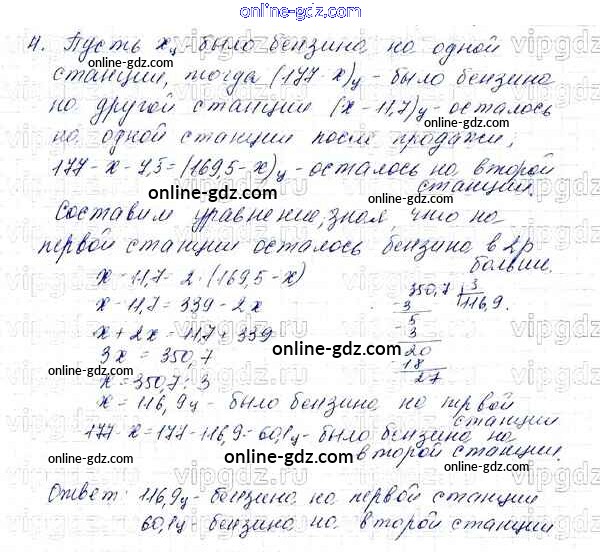 online-gdz.com
4. Пусть x ц - было бензина на одной
станции, тогда (177-x) ц - было бензина
на другой станции (x-11,7) ц - осталось
на одной станции после продажи,
177-x-7,5=(169,5-x) ц - осталось на второй
станции.
online-gdz.com
Составим уравнение, зная что на
первой станции осталось бензина в 2 р
больши.
x-11,7=2·(169,5-x)
x-11,7=339-2x
x+2x=11,7+339
3x=350,7
x=350,7:3
350,7 3
3 116,9.
5
3
20
18
27
online-gdz.com
x=116,9 ц - было бензина на первой
станции
177-x=177-116,9=60,1 ц - было бензина на
второй станции.
online-gdz.com
online-gdz.com
Ответ: 116,9 ц - бензина на первой станции
60,1 ц - бензина на второй станции
online-gdz.com